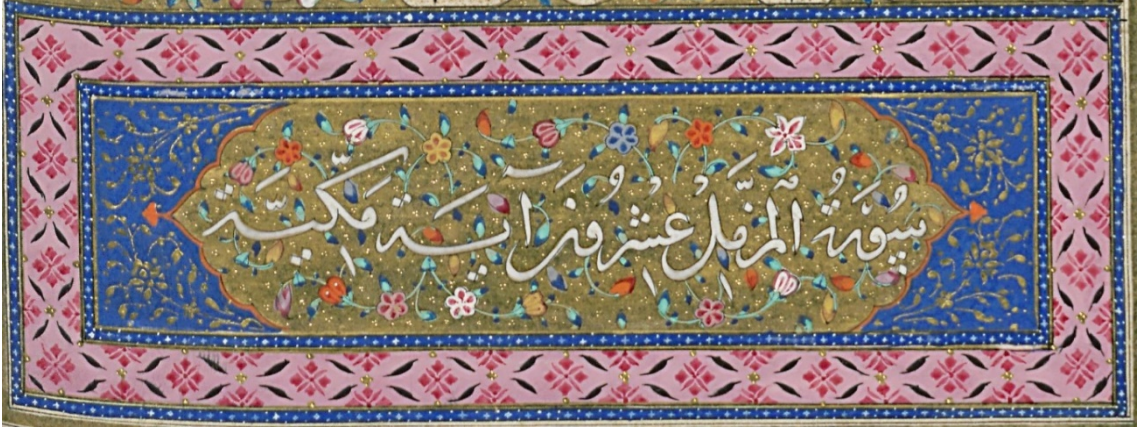 سُورَةُ الْمُزَّمِّلْ عِشْرُونَ اٰيَةً مَكِّيَّة